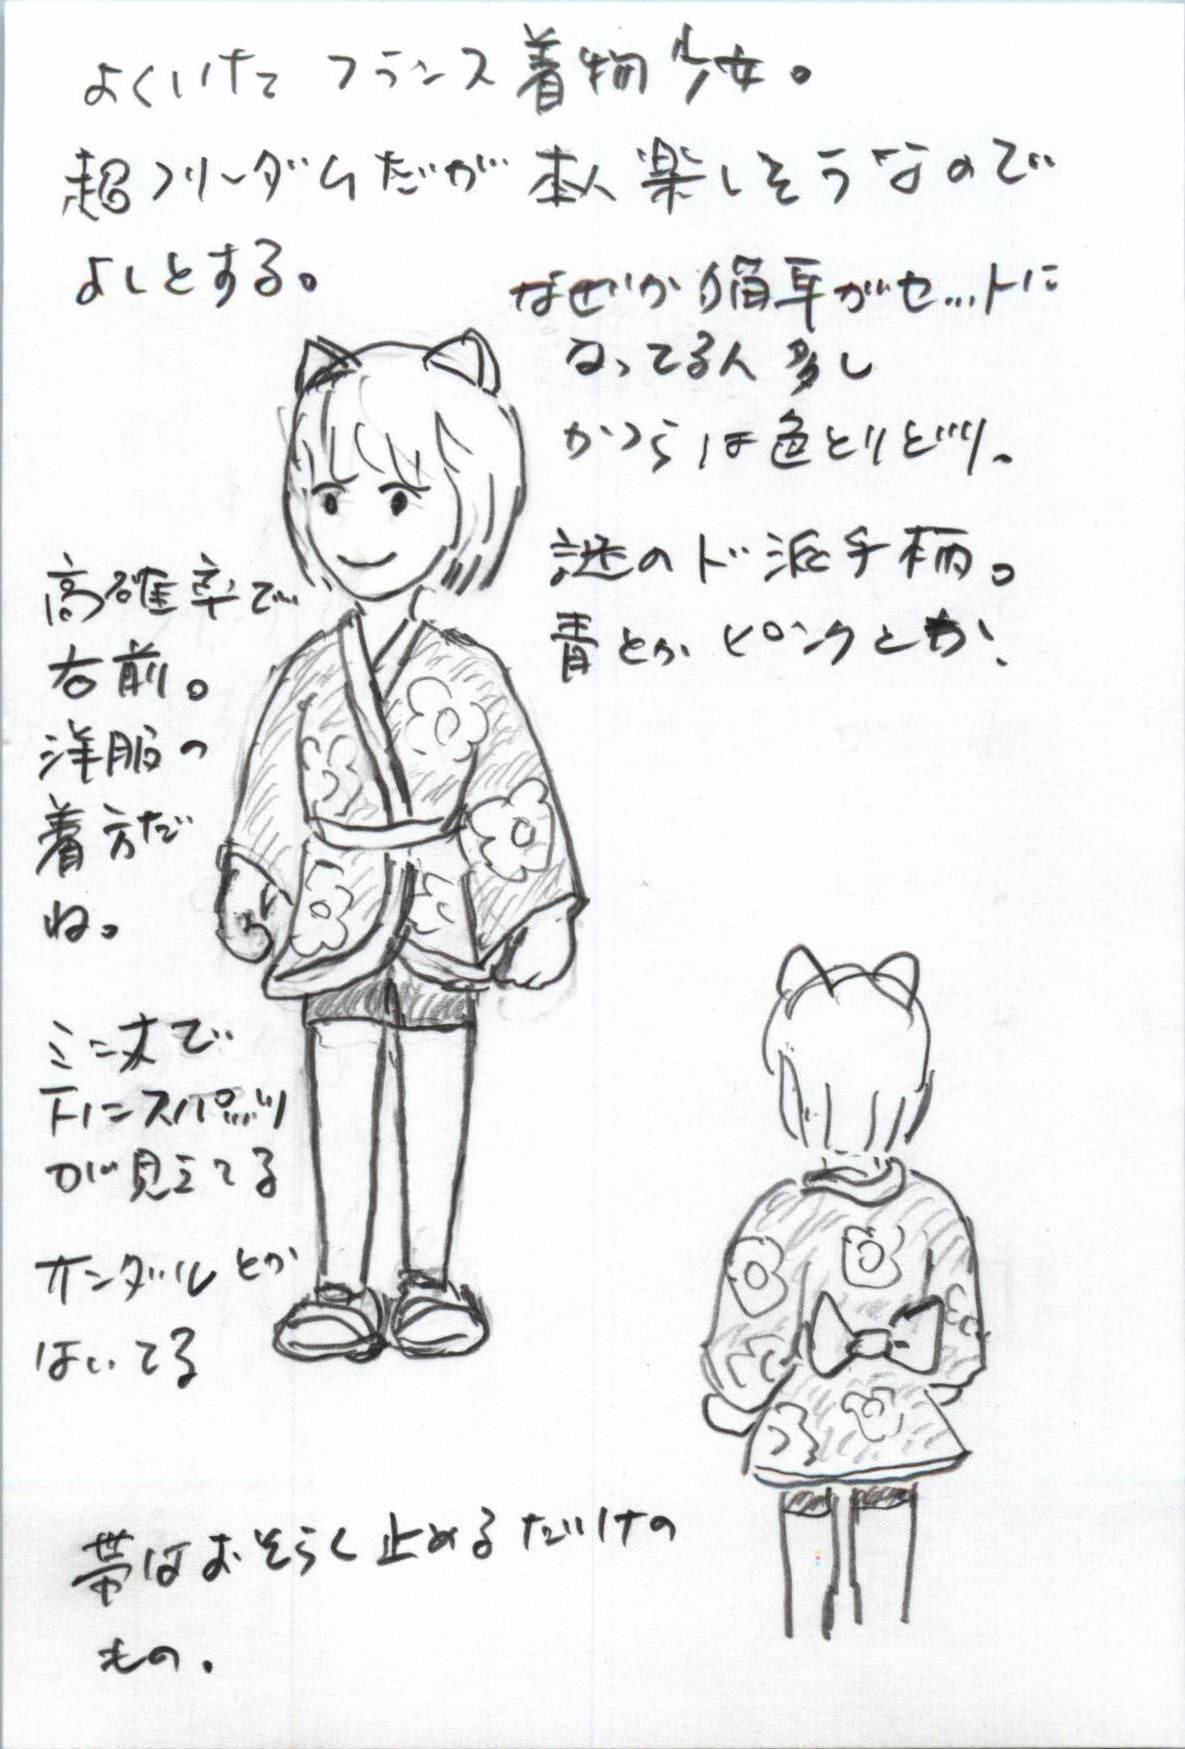 よくいた フランス着物少女。
超フリーダムだが本人楽しそうなので
よしとする。
なぜか猫耳がセットに
なってる人多し
かつらは色とりどり。
謎のド派手柄。
青とかピンクとか、
高確率で
右前。
洋服の
着方だ
ね。
ミニ丈で
下にスパッツ
が見えてる
サンダルとか
はいてる
帯はおそらく止めるだけの
もの。